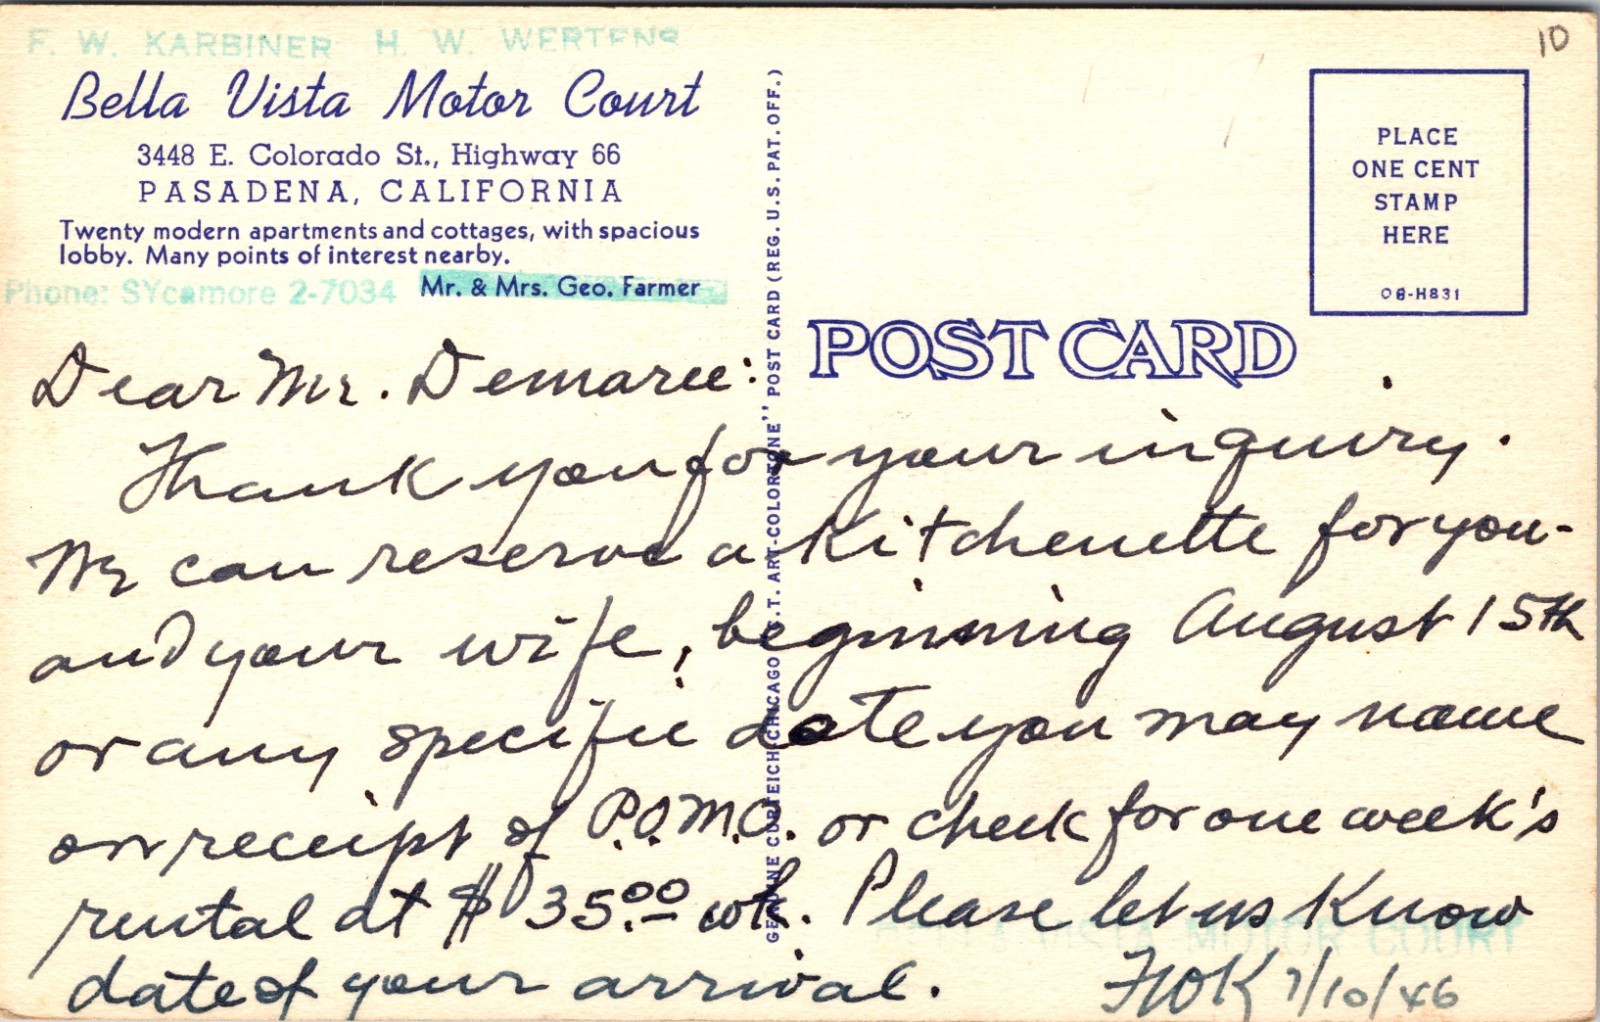 F. W. KARBINER H. W. WERTENS
10
Bella Vista Motor Court
3448 E. Colorado St., Highway 66
PASADENA, CALIFORNIA
Twenty modern apartments and cottages, with spacious
lobby. Many points of interest nearby.
Phone: SYcamore 2-7034 Mr. & Mrs. Geo. Farmer
GENUINE CURTEICH-CHICAGO "C.T. ART-COLORTONE" POST CARD (REG. U.S. PAT. OFF.)
PLACE
ONE CENT
STAMP
HERE
OB-H831
POST CARD
Dear Mr. Demaree:
Thank you for your inquiry.
We can reserve a Kitchenette for you-
and your wife, beginning August 15th
or any specific date you may name
on receipt of P.O.M.O. or check for one week's
rental at $35.00 wk. Please let us Know
BELLA VISTA MOTOR COURT
date of your arrival. FWK 7/10/46